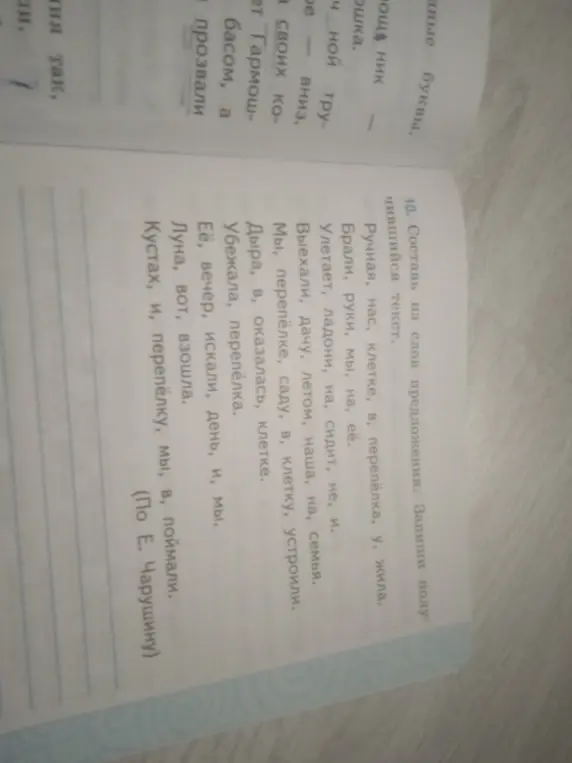 нные буквы.
ощ ник —
ошка.
ч_ной тру-
ое — вниз.
своих ко-
ет Гармош-
басом, а
прозвали
ия так,
10. Составь из слов предложения. Запиши полу
чившийся текст.
Ручная, нас, клетке, в, перепёлка, у, жила.
Брали, руки, мы, на, её.
Улетает, ладони, на, сидит, не, и.
Выехали, дачу, летом, наша, на, семья.
Мы, перепёлке, саду, в, клетку, устроили.
Дыра, в, оказалась, клетке.
Убежала, перепёлка.
Её, вечер, искали, день, и, мы.
Луна, вот, взошла.
Кустах, и, перепёлку, мы, в, поймали.
(По Е. Чарушину)